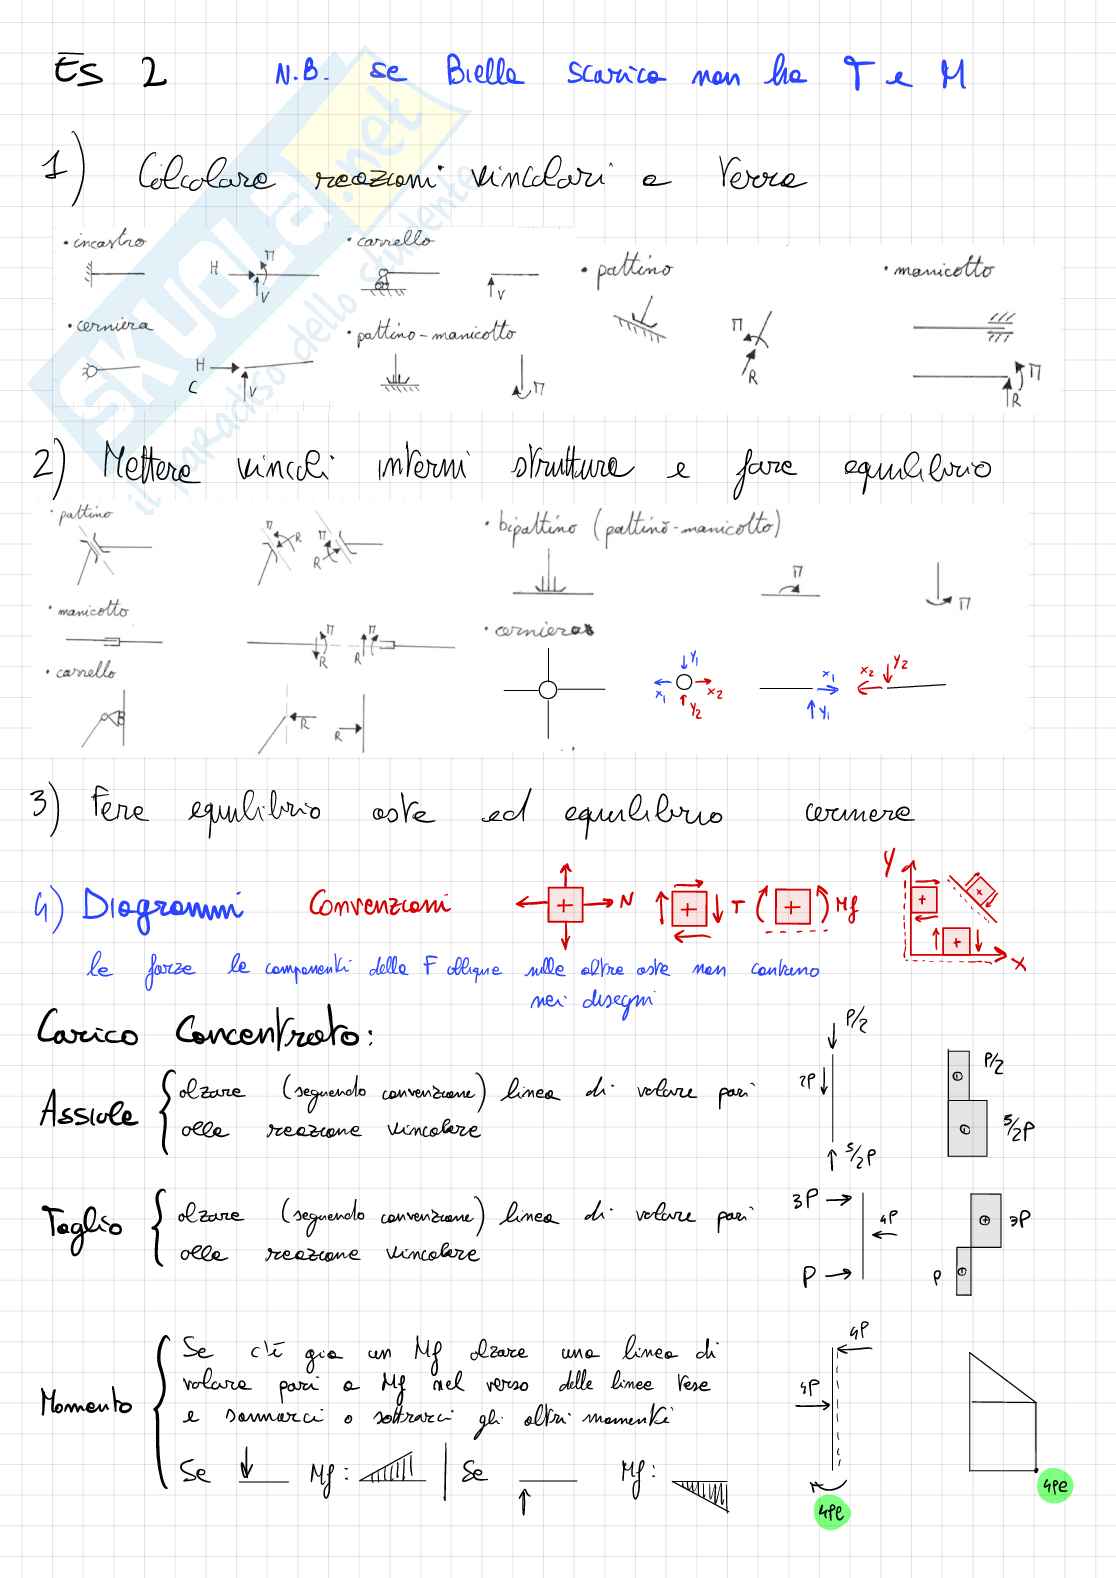 Es 2 N.B. se Biella scarica non ha T e M
1) Calcolare reazioni vincolari a Terra
• incastro
H M V
• carrello
V
• pattino
M R
• manicotto
M R
• cerniera
H C V
• pattino-manicotto
M
2) Mettere vincoli interni struttura e fare equilibrio
• pattino
M R M R
• bipattino (pattino-manicotto)
M M
• manicotto
M R R M
• cerniera
Y1 X1 X2 Y2 X1 Y1 X2 Y2
• carrello
R R
3) Fare equilibrio aste ed equilibrio cerniere
4) Diagrammi Convenzioni + N + T + Mf Y + + + X
le forze le componenti della F oblique sulle altre aste non contano
nei disegni
Carico Concentrato:
P/2 2P 5/2P P/2 5/2P
Assiale { alzare (seguendo convenzione) linea di valore pari
alla reazione vincolare
Taglio { alzare (seguendo convenzione) linea di valore pari
alla reazione vincolare
3P 4P P 3P P
Momento { Se c'è già un Mf alzare una linea di
valore pari a Mf nel verso delle linee tese
e sommarci o sottrarci gli altri momenti
Se Mf: | Se Mf:
4P 4P 4Pe 4Pe
SKUOLA.net
il paradiso dello studente